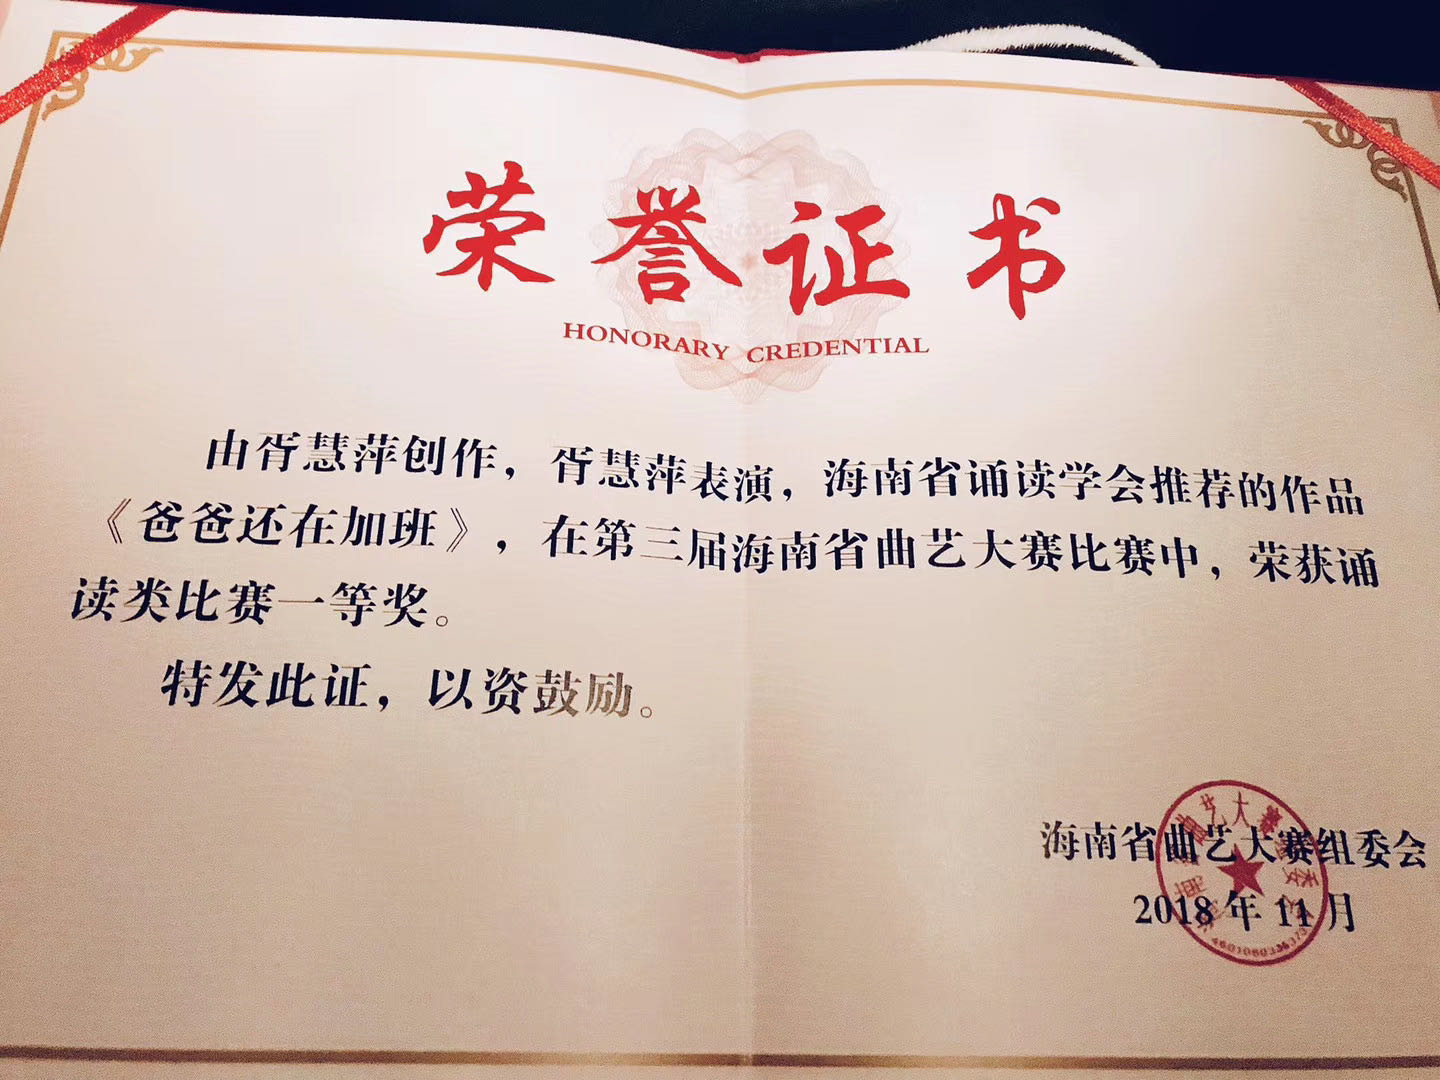 荣誉证书
HONORARY CREDENTIAL
由胥慧萍创作，胥慧萍表演，海南省诵读学会推荐的作品
《爸爸还在加班》，在第三届海南省曲艺大赛比赛中，荣获诵
读类比赛一等奖。
特发此证，以资鼓励。
海南省曲艺大赛组委会
2018年11月